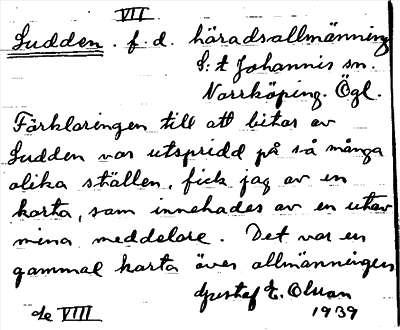 VII
Sudden. f. d. häradsallmänning
S:t Johannis sn.
Norrköping. Ögl.
Förklaringen till att bitar av
Sudden var utspridd på så många
olika ställen, fick jag av en
karta, som innehades av en utav
mina meddelare. Det var en
gammal karta över allmänningen
Gustaf E. Olsson
de VIII 1939